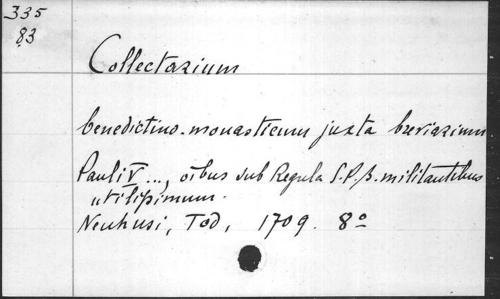 335
83
Collectarium
benedictino-monasticum juxta breviarium
Pauli V ..., oibus sub Regula S.P.B. militantibus
utilissimum.
Neuhusi, Tod, 1709. 8°